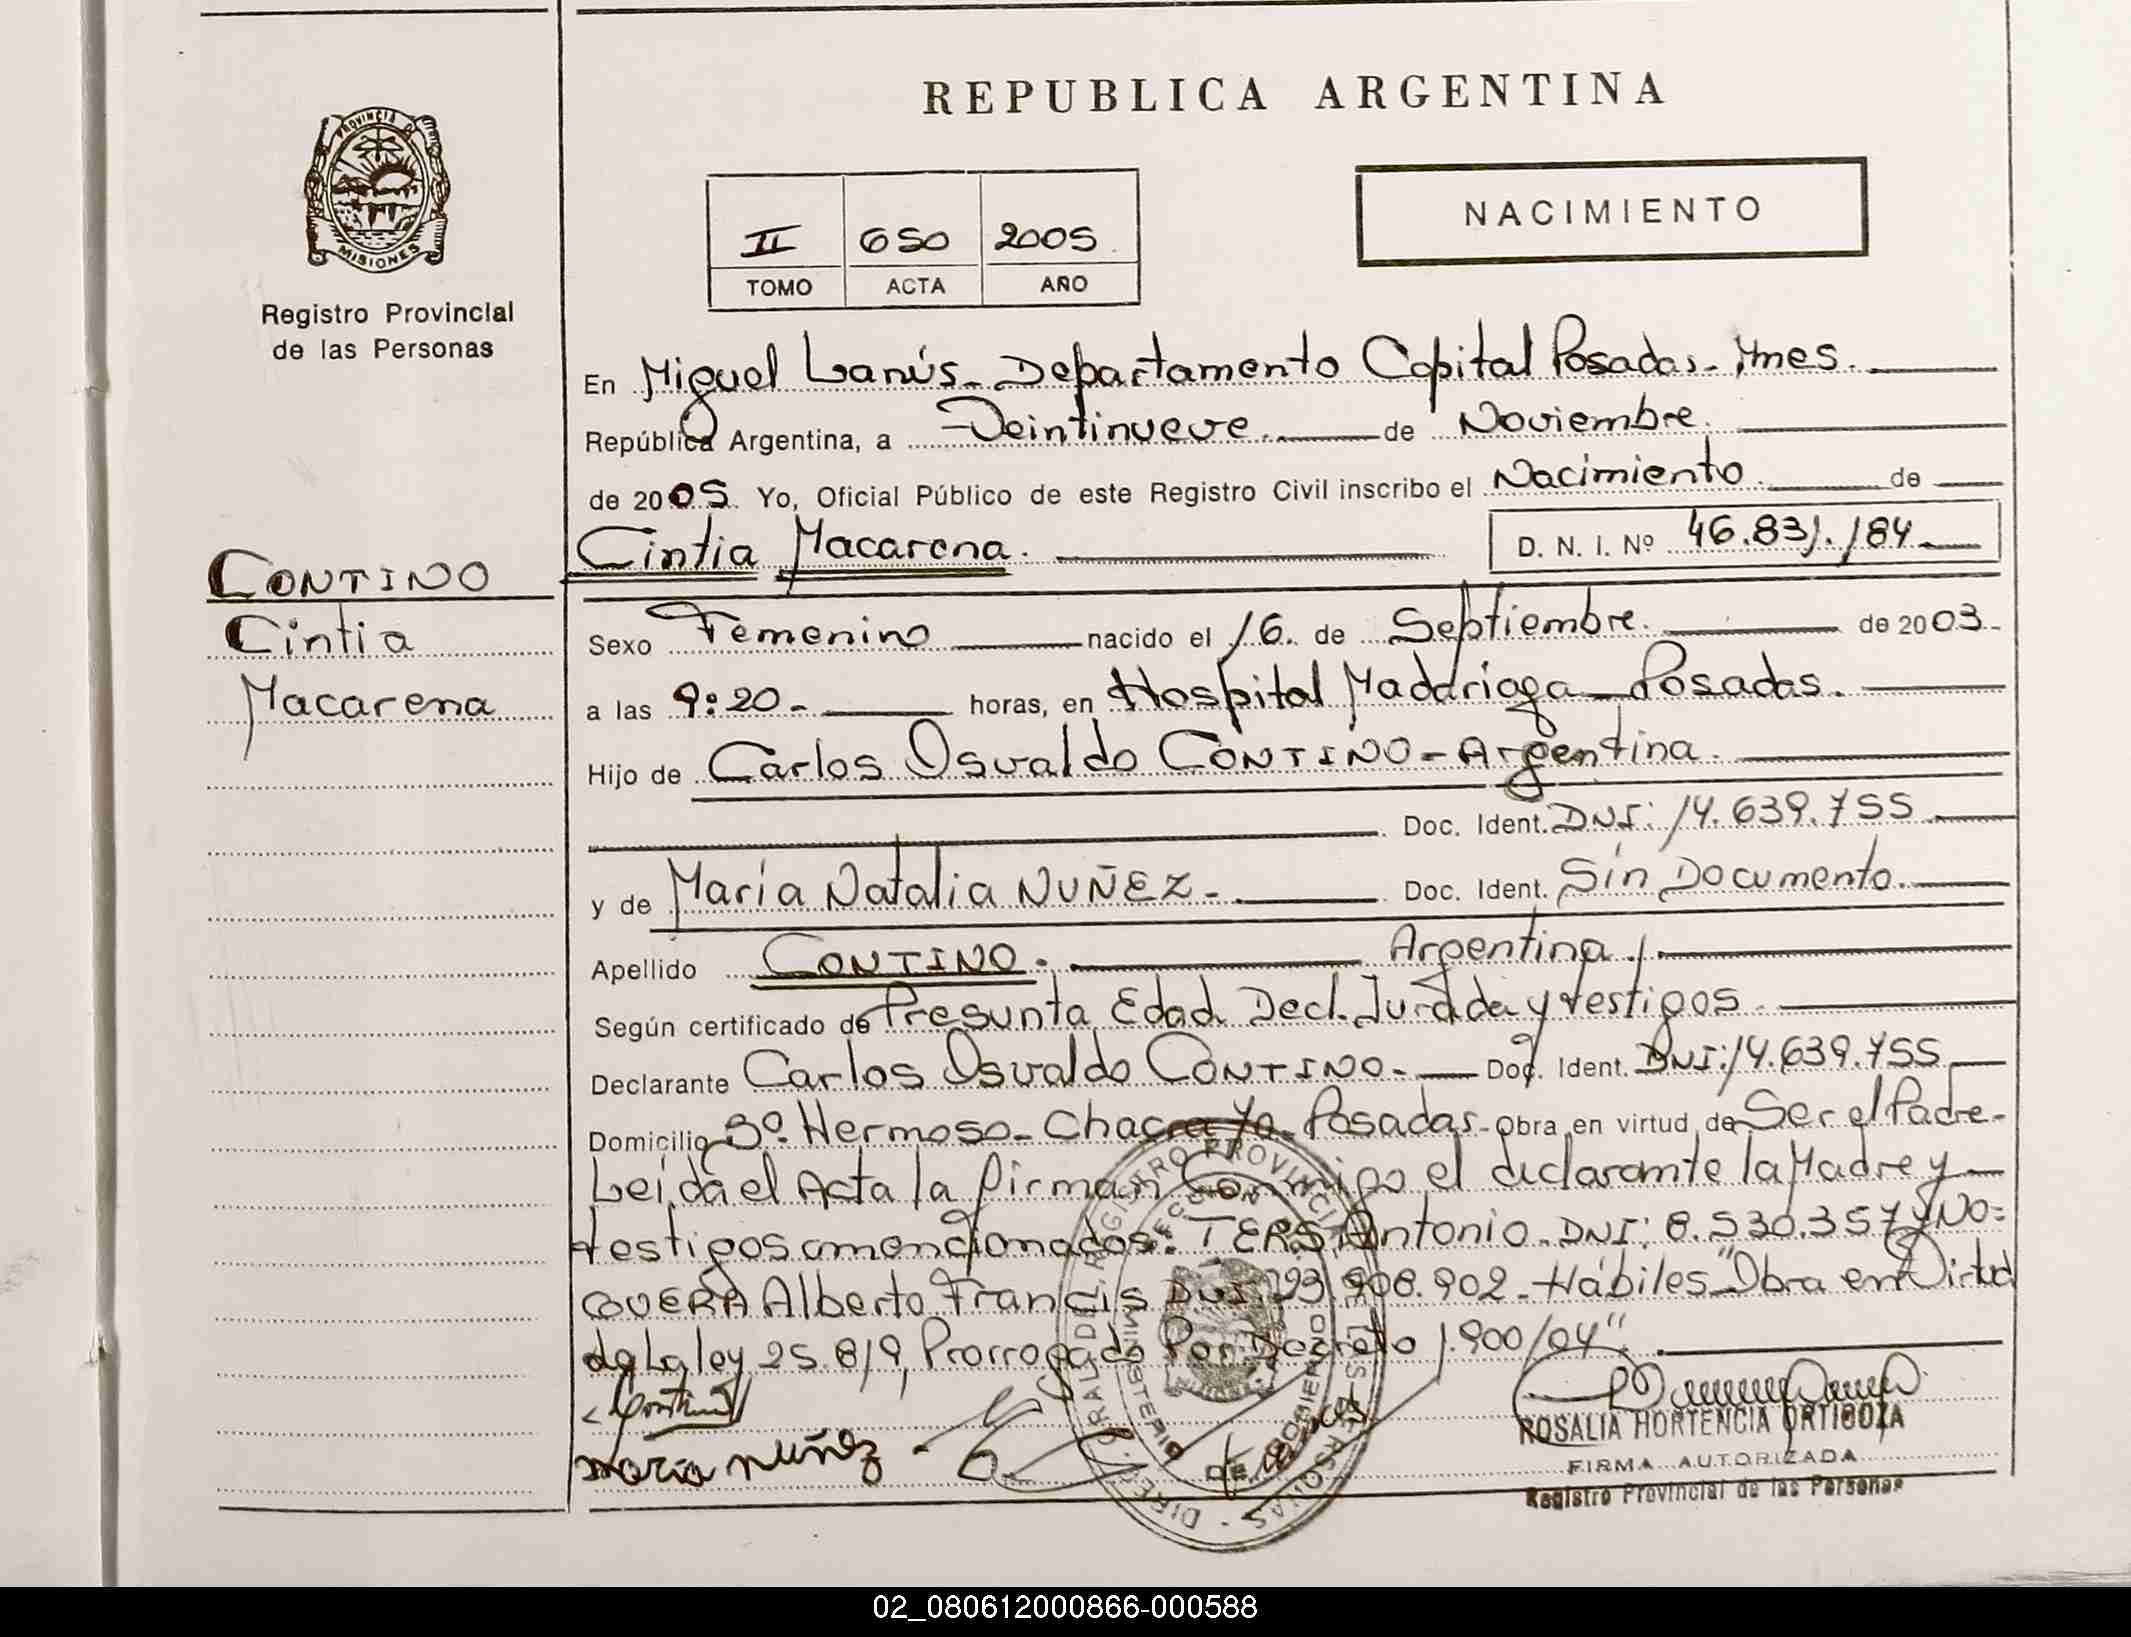 REPUBLICA ARGENTINA
PROVINCIA DE
MISIONES
Registro Provincial
de las Personas
II 650 2005
TOMO ACTA AÑO
NACIMIENTO
En Miguel Lanús - Departamento Capital Posadas - Mnes.
República Argentina, a Veintinueve de Noviembre
de 2005 Yo, Oficial Público de este Registro Civil inscribo el Nacimiento de
Cintia Macarena. D. N. I. Nº 46.831.184
CONTINO
Cintia
Macarena
Sexo Femenino nacido el 16 de Septiembre de 2003
a las 9:20 - horas, en Hospital Madariaga - Posadas.
Hijo de Carlos Osvaldo CONTINO - Argentina.
Doc. Ident. DNI: 14.639.755
y de María Natalia NUÑEZ - Doc. Ident. Sin Documento.
Apellido CONTINO. Argentina.
Según certificado de Presunta Edad Decl. Jurada y testigos.
Declarante Carlos Osvaldo CONTINO - Doc. Ident. DNI: 14.639.755
Domicilio Bº Hermoso - Chacra - Posadas - Obra en virtud de Ser el Padre -
Leída el Acta la firman Conmigo el declarante la Madre y
testigos mencionados: TERS Antonio - DNI: 8.530.357 y NO=
GUERA Alberto Francis DNI: 23.908.902 - Hábiles "Obra en Virtud
de La ley 25.819, Prorrogado Por Decreto 1.900/04".
Contino
maria nuñez
ROSALIA HORTENCIA ORTIGOZA
FIRMA AUTORIZADA
Registro Provincial de las Personas
02_080612000866-000588